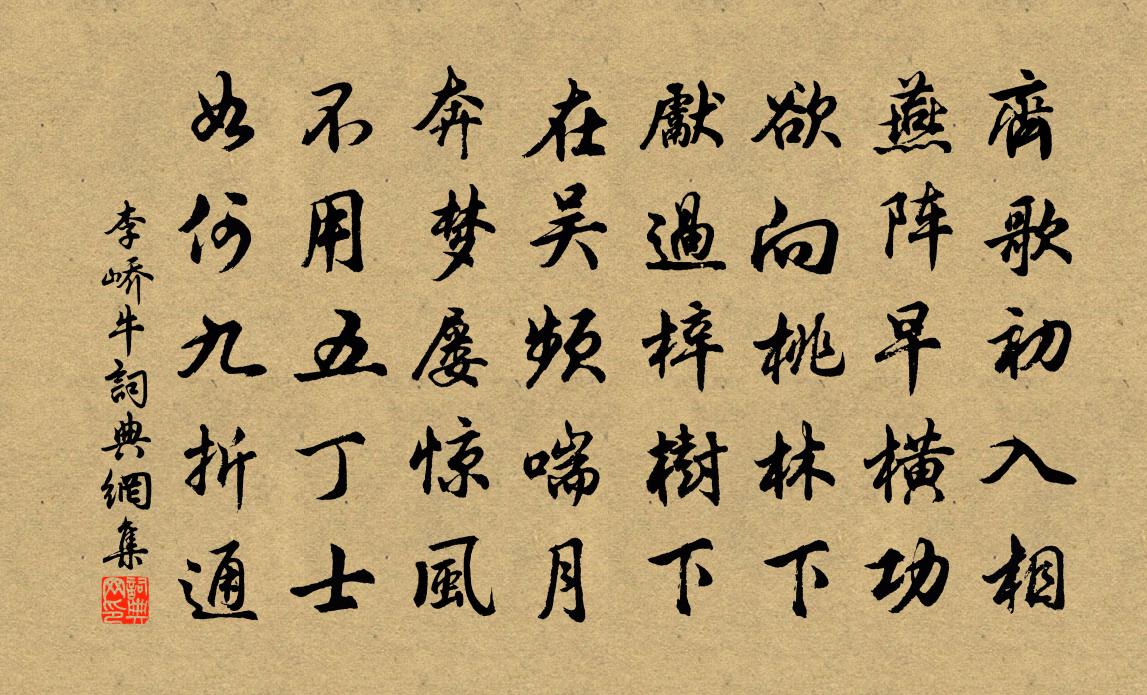 齊歌初入相
燕阵早横功
欲向桃林下
獻過梓樹下
在吴頻喘月
奔梦屡惊風
不用五丁士
如何九折通
李嶠牛詞典網集
詞典网印